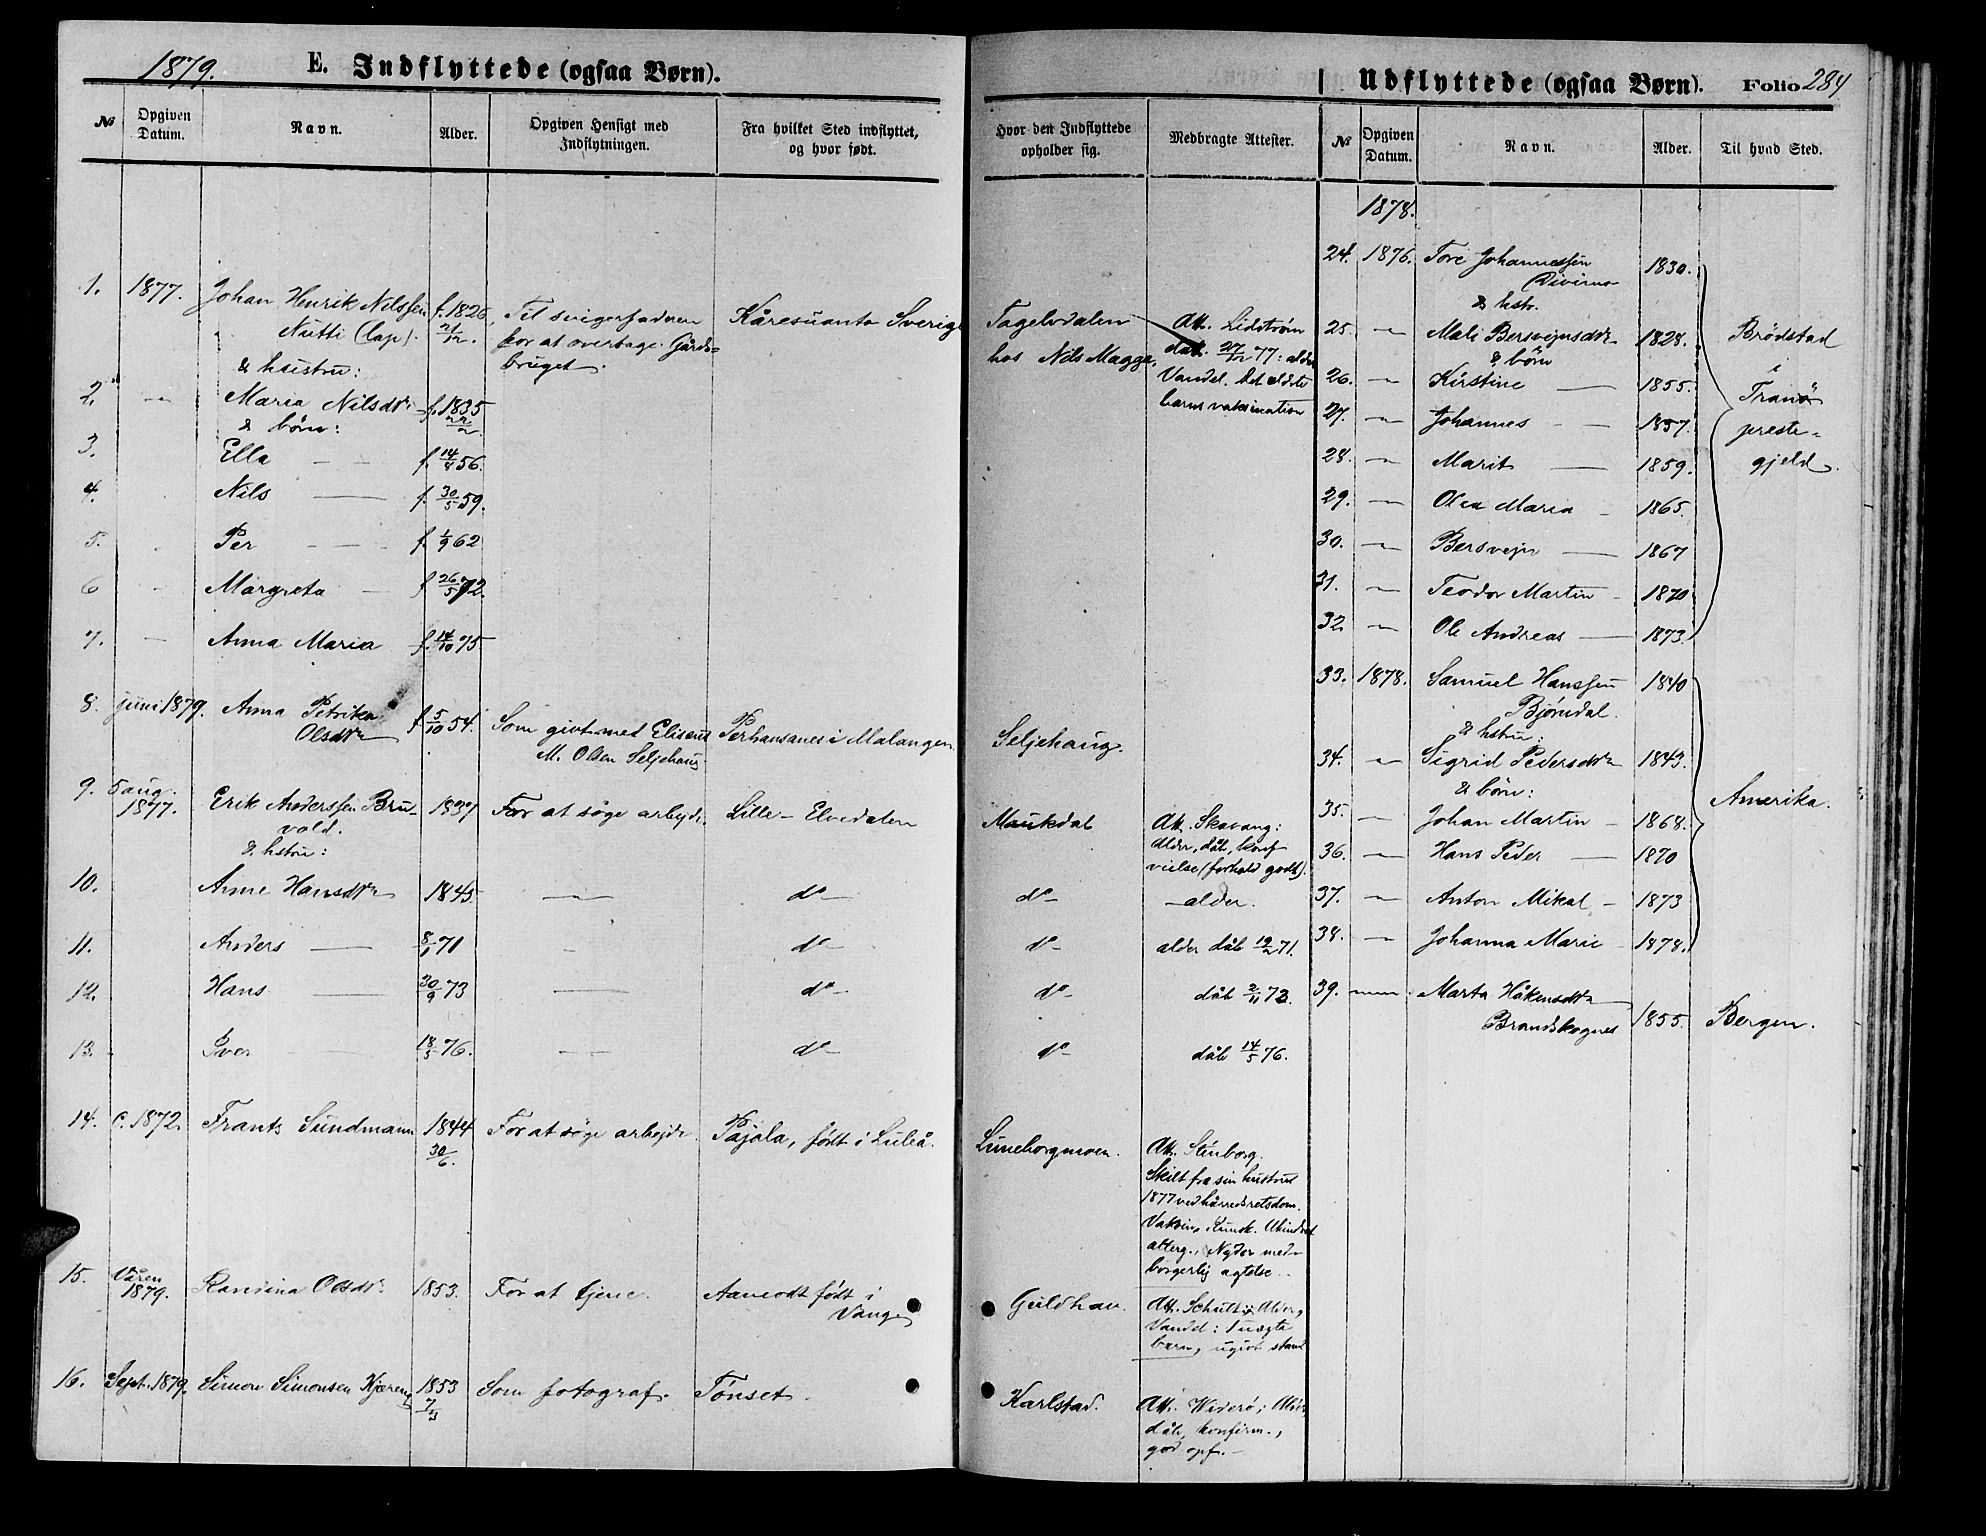 1879.
E. Indflyttede (ogsaa Børn).
№ Opgiven Datum. Navn. Alder. Opgiven Hensigt med Indflytningen. Fra hvilket Sted indflyttet, og hvor født.
Hvor den Indflyttede opholder sig. Medbragte Attester.
1. 1877. Johan Henrik Nilssen f. 1826 Til svigerfaderen Kåresuanto Sverige Fagelvdalen Att. Lidström
Nutti (lap). 21/12. for at overtage Gårds- hos Nils Magga. dat. 27/12 77: alder
& hustru: bruget. Vandel. Det ældste
2. -"- Maria Nilsdtr f. 1835 barns vaksination
& börn: 22/2.
3. Ella — f. 14/8 56.
4. Nils — f. 30/5 59.
5. Per — f. 1/9 62
6 Margreta — f. 26/5 72.
7. — Anna Maria f. 14/10 75
8. juni 1879. Anna Petrika f 5/10 54. Som givt med Eliseus Perhansanes i Malangen. Seljehaug.
Olsdtr M. Olsen Seljehaug
9. 5 aug. 1877. Erik Anderssen Bru- 1837 For at söge arbejde. Lille-Elvedalen Maukdal Att. Skavang:
vold. alder, dåb, konf
& hstru: vielse (forhold godt).
10. Anne Hansdtr 1845. — do- do- -alder.
11. Anders — 8/1 71 - do- do- alder dåb 19/2 71.
12. Hans — 30/9 73 — do- do- dåb 2/11 73.
13. Iver 18/3 76. — do- do- dåb 14/5 76.
14. c. 1872. Frants Sundmann 1844 For at söge arbejde. Pajala, født i Luleå. Luneborgmoen. Att. Stenborg.
30/6. Skilt fra sin hustru
1877 ved häradsretsdom.
Vaksin, Kunsk.
Nyder med-
borgerlig agtelse.
15. Våren 1879. Randina Olsdtr 1853. For at tjene. Aamodt født i Guldhav. Att. Schult: Alder,
Vang Vandel: 1 uægte
barn, ugivt stand
16. Sept. 1879. Simon Simonsen Kjæreng 1853 Som fotograf. Tönset. Karlstad. Att. Widerö; Alder,
7/3 dåb, konfirm.,
god opf. -
Udflyttede (ogsaa Børn). Folio 284
№ Opgiven Datum. Navn. Alder. Til hvad Sted.
1878.
24. 1876. Tore Johannessen 1830.
Divirno
& hstr.
25. -"- Mali Bersvejnsdtr 1828. Brödstad
& börn i
26. -"- Kirstine — 1855. Tranö
27. -"- Johannes — 1857. preste-
28. -"- Marit — 1859. gjeld.
29. -"- Olea Maria - 1865.
30. -"- Bersvejn — 1867
31. -"- Teodor Martin - 1870
32 -"- Ole Andreas — 1873.
33. 1878. Samuel Hanssen 1840
Bjørndal.
& hstru:
34. -"- Sigrid Pedersdtr 1843.
& börn: Amerika.
35. -"- Johan Martin - 1868.
36. -"- Hans Peder — 1870
37. -"- Anton Mikal - 1873
38. -"- Johanna Marie - 1878.
39. -"- Marta Håkensdtr
Brandskognes 1855. Bergen.